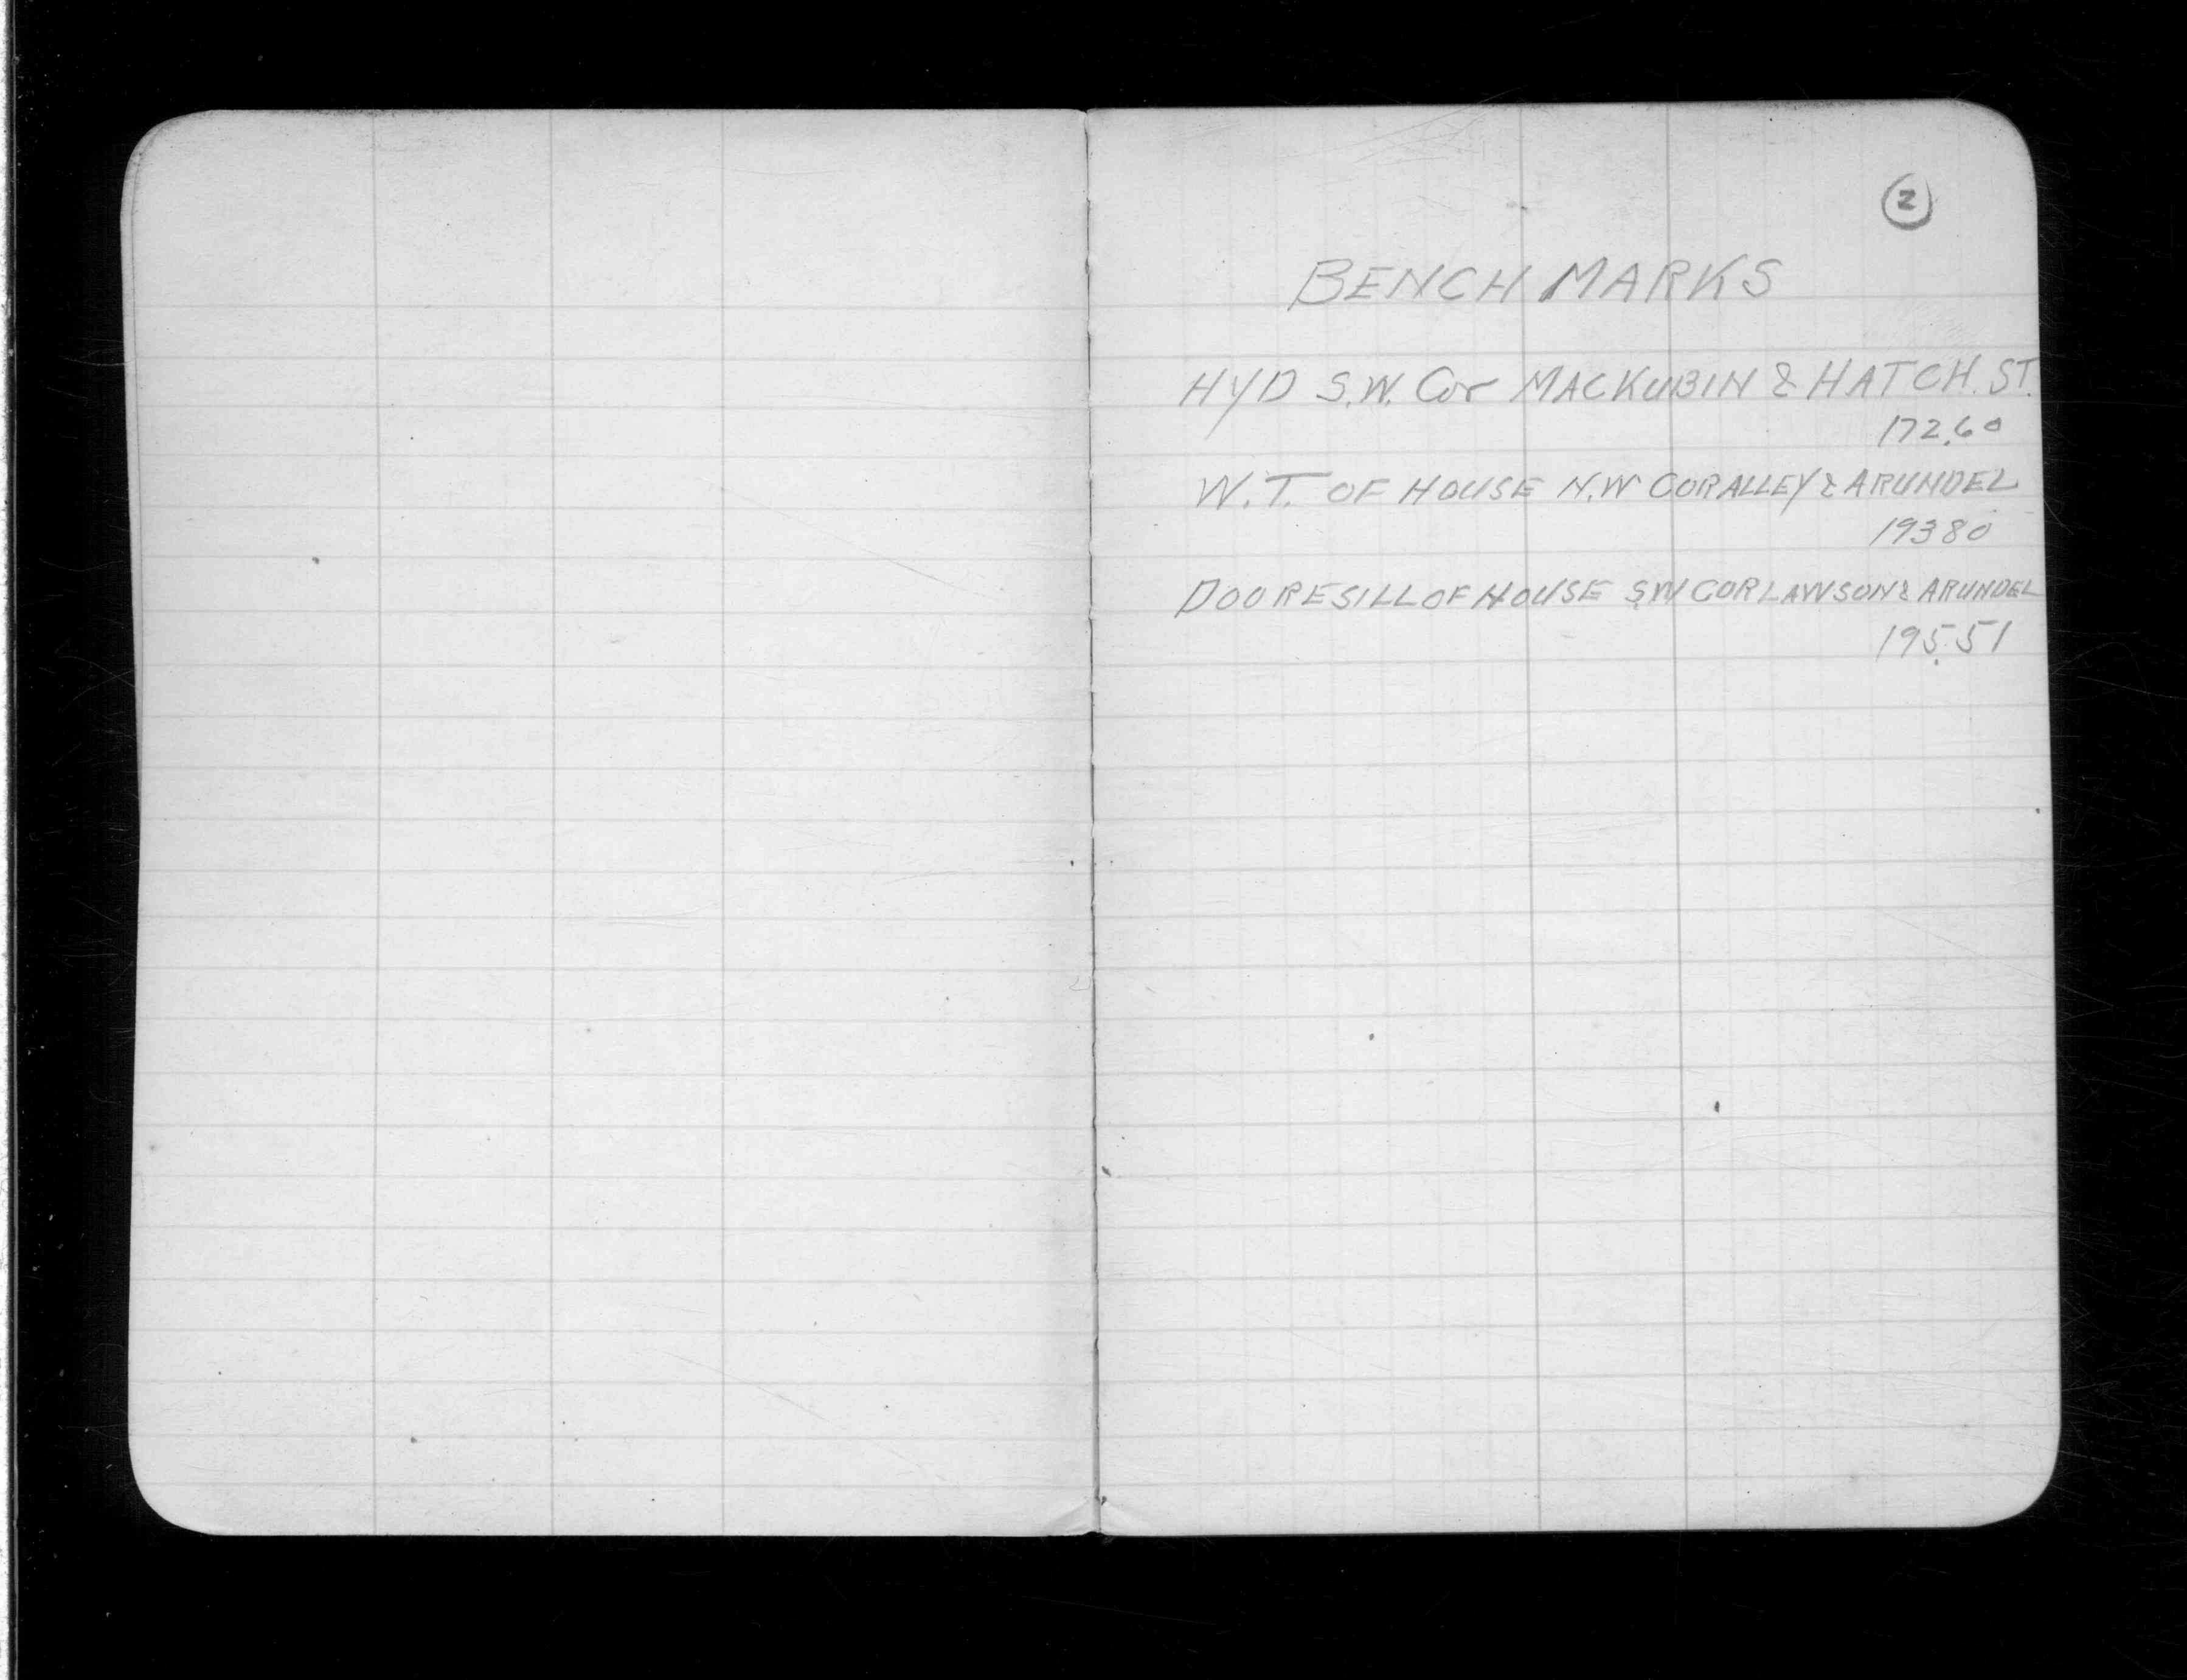 2
BENCH MARKS
HYD S.W. Cor MACKUBIN & HATCH. ST.
172.60
W.T. OF HOUSE N.W COR ALLEY & ARUNDEL
19380
DOORESILL OF HOUSE SW COR LAWSON & ARUNDEL
195.51